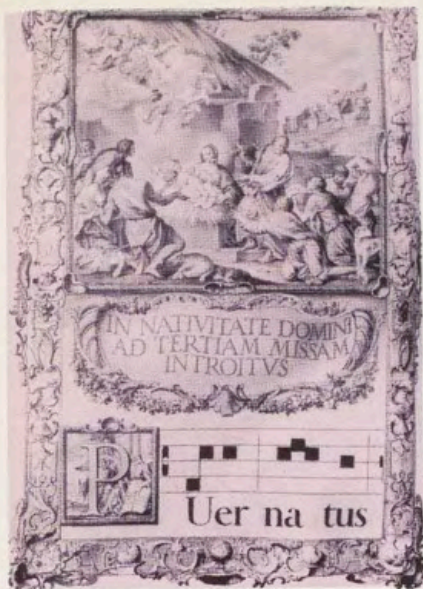 IN NATIVITATE DOMINI
AD TERTIAM MISSAM
INTROITVS
PUer na tus